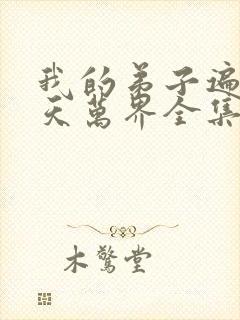 我的弟子遍
天萬界全集
木驚堂